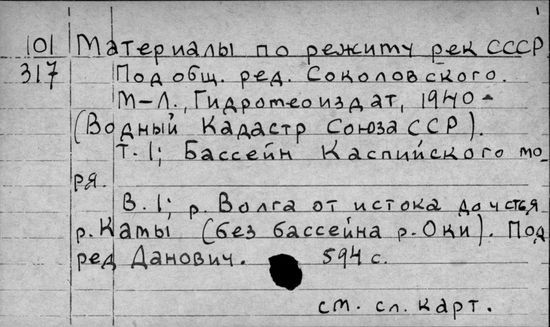 101 Материалы по режиму рек СССР
317 Под общ. ред. Соколовского.
М-Л., Гидрометеоиздат, 1940-
(Водный Кадастр Союза ССР).
Т. 1; Бассейн Каспийского мо-
ря.
В. 1; р. Волга от истока до устья
р. Камы (без бассейна р. Оки). Под
ред Данович. 594 с.
см. сл. карт.